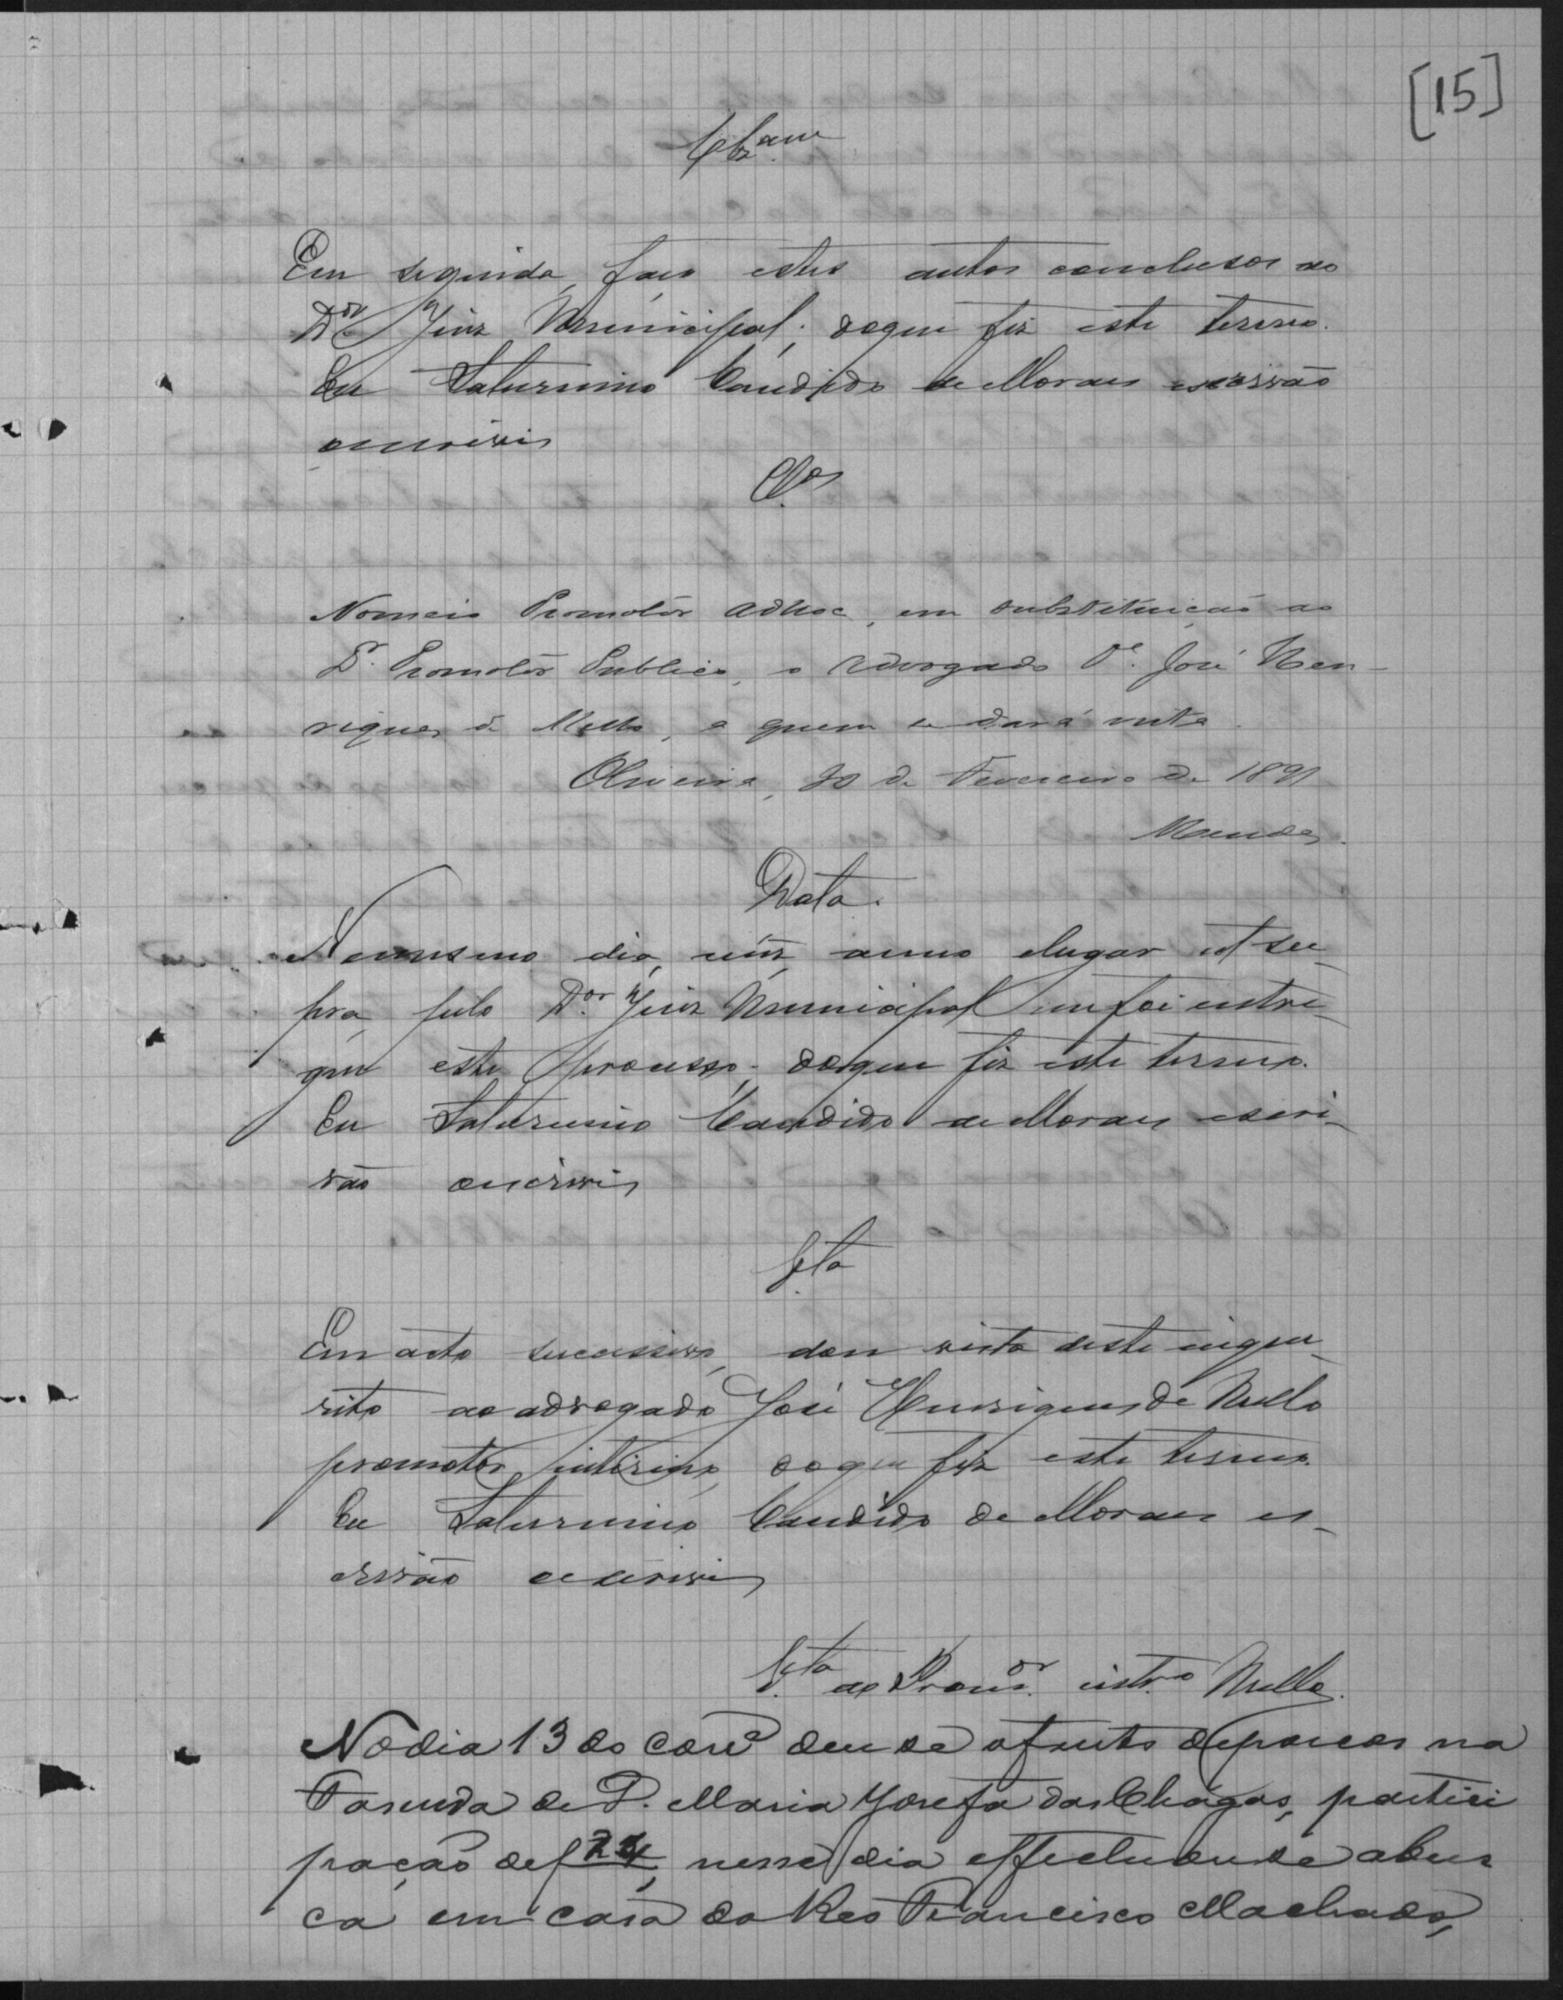 [15]
Clzam
Em seguida, faço estes autos conclusos ao
Dor Juiz Municipal; doque fiz este termo.
Eu Saturnino Candido de Moraes escrivão
oescrivi
Clos
Nomeio Promotor adhoc, em substituição ao
Dr. Promotor Publico, o advogado Dr. José Hen-
riques de Mello, a quem se dará vista.
Oliveira, 20 de Fevereiro de 1891
Mendes.
Data.
Nomesmo dia, mez, anno elugar ut su-
pra, pelo Dor. Juiz Municipal me foi entre-
gue este processo; doque fiz este termo.
Eu Saturnino Candido de Moraes escri-
vão oescrivi
Vta
Em acto successivo, dou vista deste inque-
rito ao advogado José Henriques de Mello
promotor interino, doque fiz este termo.
Eu Saturnino Candido de Moraes es-
crivão oescrivi
Vta ao Promor. intro Mello.
No dia 13 do corre deu se ofurto deporcos na
Fasenda de D. Maria Josefa das Chagas, partici
pação def 24, nesse dia effectuou se abus
ca em casa do Reo Francisco Machado,